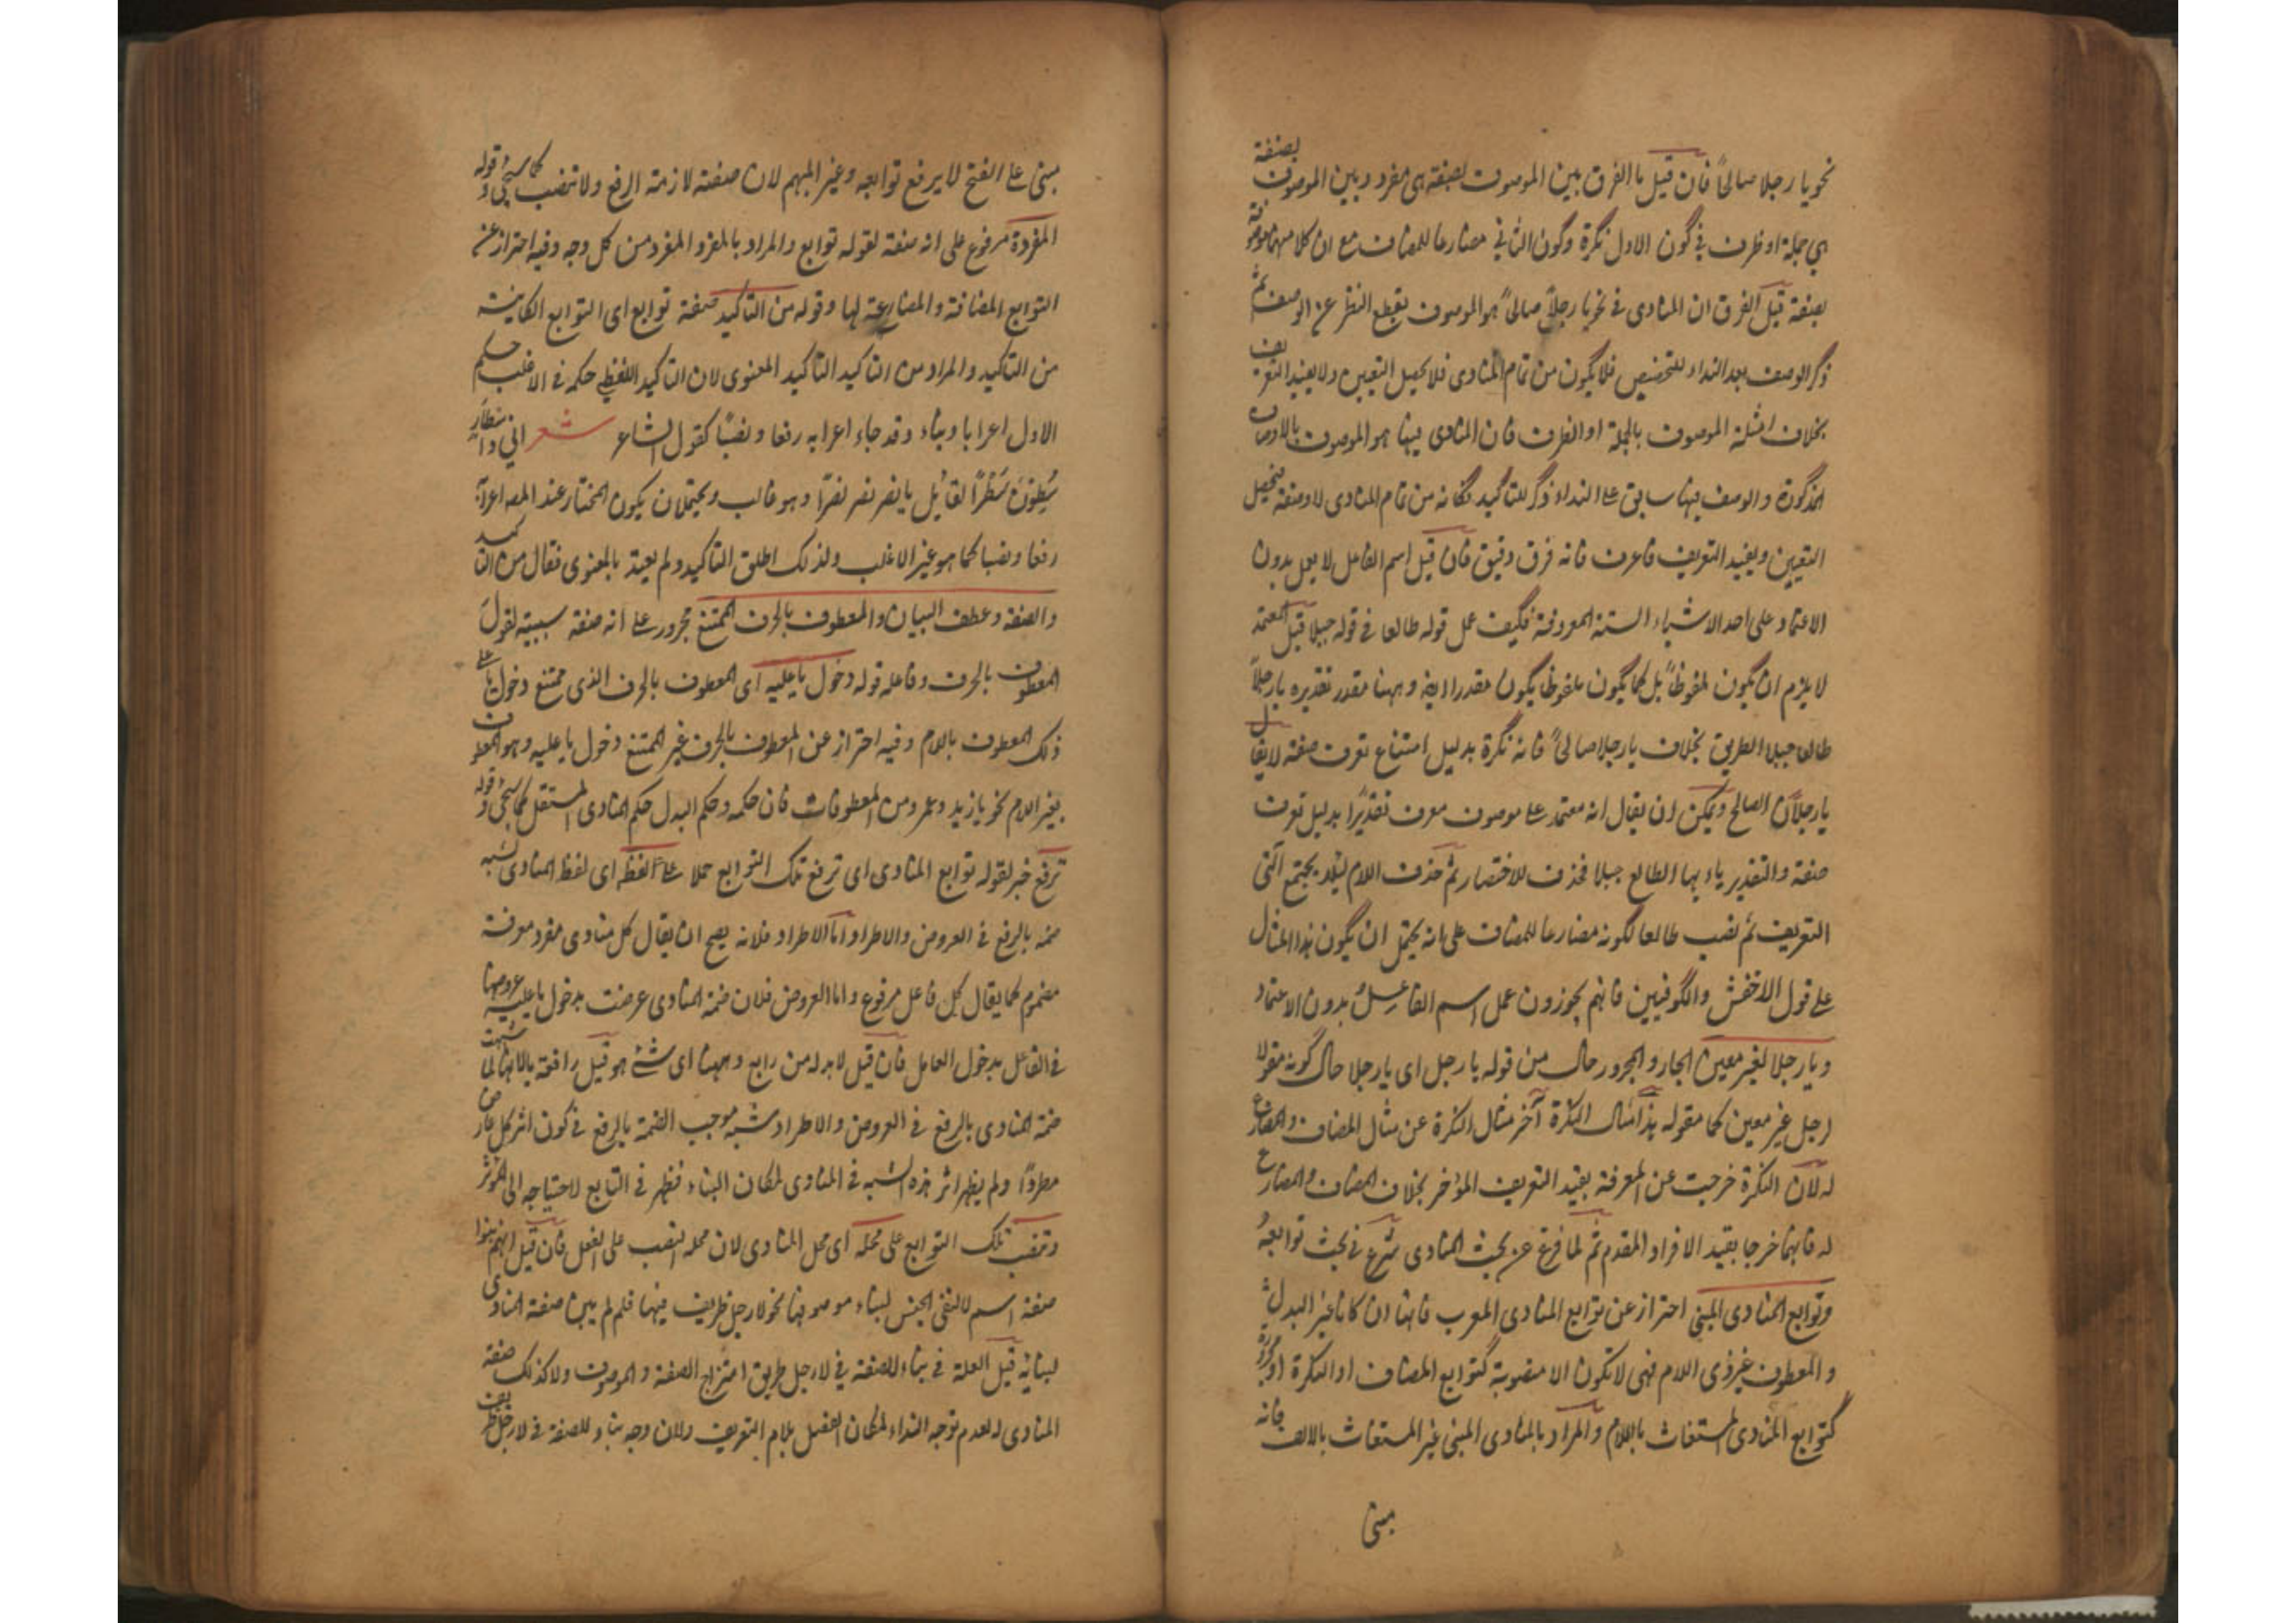 نحو يا رجلا صالحاً فان قيل ما الفرق بين الموصوف بصفة هى مفرد وبين الموصوف بصفة
هي جملة او ظرف في كون الاول نكرة وكون الثاني مضارعا للمضاف مع ان كلا منهما موصوفة
بصفة قيل الفرق ان المنادى في نحو يا رجلاً صالحاً هو الموصوف بقطع النظر عن الوصف ثم
ذكر الوصف بعد النداء للتخصيص فلا يكون من تمام المنادى فلا يحصل التعيين ولا يفيد التعريف
بخلاف امثلة الموصوف بالجملة او الظرف فان المنادى فيها هو الموصوف بالاوصاف
المذكورة والوصف فيها سابق على النداء ذكر للتاكيد فكانه من تمام المنادى لا وصفة فيحصل
التعيين ويفيد التعريف فاعرف فانه فرق دقيق فان قيل اسم الفاعل لا يعمل بدون
الاعتماد على احد الاشياء الستة المعروفة فكيف عمل قوله طالعا في قوله جبلا قيل المعتمد
لا يلزم ان يكون ملفوظاً بل كما يكون ملفوظا يكون مقدرا ايضا وههنا مقدر تقديره يا رجلاً
طالعا جبلا الطريق بخلاف يا رجلا صالحاً فانه نكرة بدليل امتناع تعرف صفة لا يقال
يا رجلاً الصالح ويمكن ان يقال انه معتمد على موصوف معرف تقديرًا بدليل تعرف
صفة والتقدير يا ايها الطالع جبلا فحذف للاختصار ثم حذف اللام لئلا يجتمع آلتى
التعريف ثم نصب طالعا لكونه مضارعا للمضاف على انه يحتمل ان يكون هذا المثال
على قول الاخفش والكوفيين فانهم يجوزون عمل اسم الفاعل بدون الاعتماد
ويا رجلا لغير معين الجار والمجرور حال من قوله يا رجل اى يا رجلا حال كونه مقولا
لرجل غير معين كما مقوله هذا مثال النكرة آخر مثال النكرة عن مثال المضاف والمضارع
له لان النكرة خرجت عن المعرفة بقيد التعريف المؤخر بخلاف المضاف والمضارع
له فانهما خرجا بقيد الافراد المقدم ثم لما فرغ عن بحث المنادى شرع في بحث توابعه
وتوابع المنادى المبني احتراز عن توابع المنادى المعرب فانها ان كانا غير البدل
والمعطوف غير ذى اللام فهى لا تكون الا منصوبة كتوابع المضاف او النكرة او مجرورة
كتوابع المنادى المستغاث باللام والمراد بالمنادى المبنى غير المستغاث بالالف فانه
مبنى
مبنى على الفتح لا يرفع توابعه وغير المبهم لان صفته لازمة الرفع ولا تنصب كما سيجيئ وقوله
المفردة مرفوع على انه صفة لقوله توابع والمراد بالمفرد المفرد من كل وجه وفيه احتراز عن
التوابع المضافة والمضارعة لها وقوله من التاكيد صفة توابع اى التوابع الكائنة
من التاكيد والمراد من التاكيد التاكيد المعنوى لان التاكيد اللفظى حكمه في الاغلب حكم
الاول اعرابا وبناء وقد جاء اعرابه رفعا ونصبًا كقول الشاعر شعر اني واسطار
سُطِرْنَ سَطْرًا لقائل يا نصر نصر نصرًا وهو غالب ويحتمل ان يكون المختار عند المص اعرابه
رفعا ونصبا كما هو غير الاغلب ولذلك اطلق التاكيد ولم يقيد بالمعنوى فقال من التاكيد
والصفة وعطف البيان والمعطوف بالحرف الممتنع مجرور على انه صفة سببية لقول
المعطوف بالحرف وفاعله قوله دخول يا عليه اى المعطوف بالحرف الذى ممتنع دخول يا على
ذلك المعطوف باللام وفيه احتراز عن المعطوف بالحرف غير الممتنع دخول يا عليه وهو المعطوف
بغير اللام نحو يا زيد وعمرو من المعطوفات فان حكمه وحكم البدل حكم المنادى المستقل كما سيجئ وقوله
ترفع خبر لقوله توابع المنادى اى ترفع تلك التوابع حملا على لفظه اى لفظ المنادى لشبه
ضمه بالرفع في العروض والاطراد اما الاطراد فلانه يصح ان يقال كل منادى مفرد معرفة
مضموم كما يقال كل فاعل مرفوع واما العروض فلان ضمة المنادى عرضت بدخول يا عليه عروضها
في الفاعل بدخول العامل فان قيل لا بد له من رابع وههنا اى شئ هو قيل رافعة بالابهام لما شبهت
ضمة المنادى بالرفع في العروض والاطراد شبه موجب الضمة بالرفع في كون اثر كل عارض
مطردًا ولم يظهر اثر هذه الشبه في المنادى لمكان البناء فظهر في التابع لاحتياجه الى المؤثر
وتنصب تلك التوابع على محله اى محل المنادى لان محله النصب على الفعل فان قيل انهم بنوا
صفة اسم لا لنفى الجنس لبناء موصوفها نحو لا رجل ظريف فيها فلم لم يبن صفة المنادى
لبنائه قيل العلة في بناء الصفة في لا رجل ظريف امتزاج الصفة والموصوف ولا كذلك صفة
المنادى لعدم توجه النداء لمكان الفصل بلام التعريف ولان وجه بناء الصفة في لا رجل ظريف